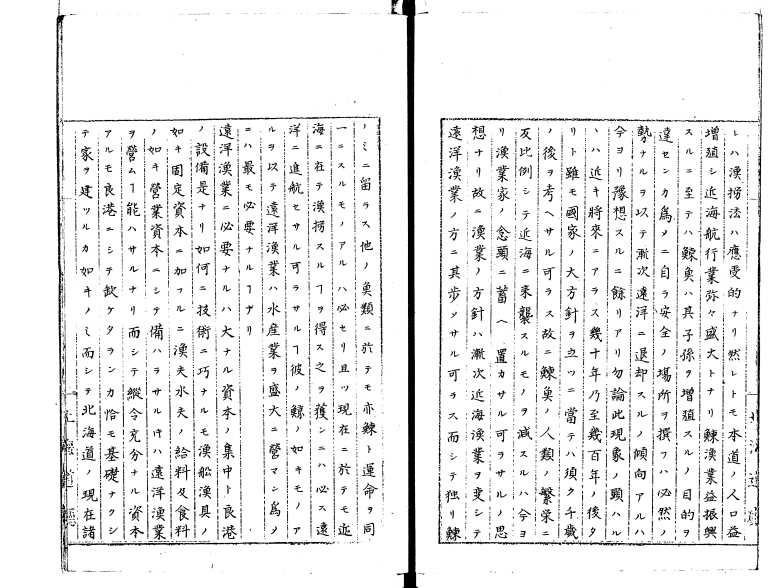 レハ漁撈法ハ應変的ナリ然レトモ本道ノ人口益
増殖シ近海航行業弥々盛大トナリ鰊漁業益振興
スルニ至テハ鰊魚ハ其子孫ヲ増殖スルノ目的ヲ
達センカ為メニ自ラ安全ノ場所ヲ撰フハ必然ノ
勢ナルヲ以テ漸次遠洋ニ退却スルノ傾向アルハ
今ヨリ豫想スルニ餘リアリ勿論此現象ノ顕ハル
ヽハ近キ將來ニアラス幾十年乃至幾百年ノ後タ
リト雖モ國家ノ大方針ヲ立ツニ當テハ須ク千歳
ノ後ヲ考ヘサル可ラス故ニ鰊魚ノ人類ノ繁栄ニ
反比例シテ近海ニ来襲スルモノヲ減スルハ今ヨ
リ漁業家ノ念頭ニ蓄ヘ置カサル可ラサルノ思
想ナリ故ニ漁業ノ方針ハ漸次近海漁業ヲ変シテ
遠洋漁業ノ方ニ其歩メサル可ラス而シテ独リ鰊
ノミニ留ラス他ノ魚類ニ於テモ亦鰊ト運命ヲ同
一ニスルモノアルハ必セリ且ツ現在ニ於テモ近
海ニ在テ漁撈スルヿヲ得ス之ヲ獲ンニハ必ス遠
洋ニ進航セサル可ラサルヿ彼ノ鯨ノ如キモノア
ルヲ以テ遠洋漁業ハ水産業ヲ盛大ニ營マン為メ
ニハ最モ必要ナルヿナリ
遠洋漁業ニ必要ナルハ大ナル資本ノ集中ト良港
ノ設備是ナリ如何ニ技術ニ巧ナルモ漁舩漁具ノ
如キ固定資本ニ加フルニ漁夫水夫ノ給料及食料
ノ如キ營業資本ニシテ備ハラサル片ハ遠洋漁業
ヲ營ムヿ能ハサルナリ而シテ縱令充分ナル資本
アルモ良港ニシテ欽ケタランカ恰モ基礎ナクシ
テ家ヲ建ツルカ如キノミ而シテ北海道ノ現在諸